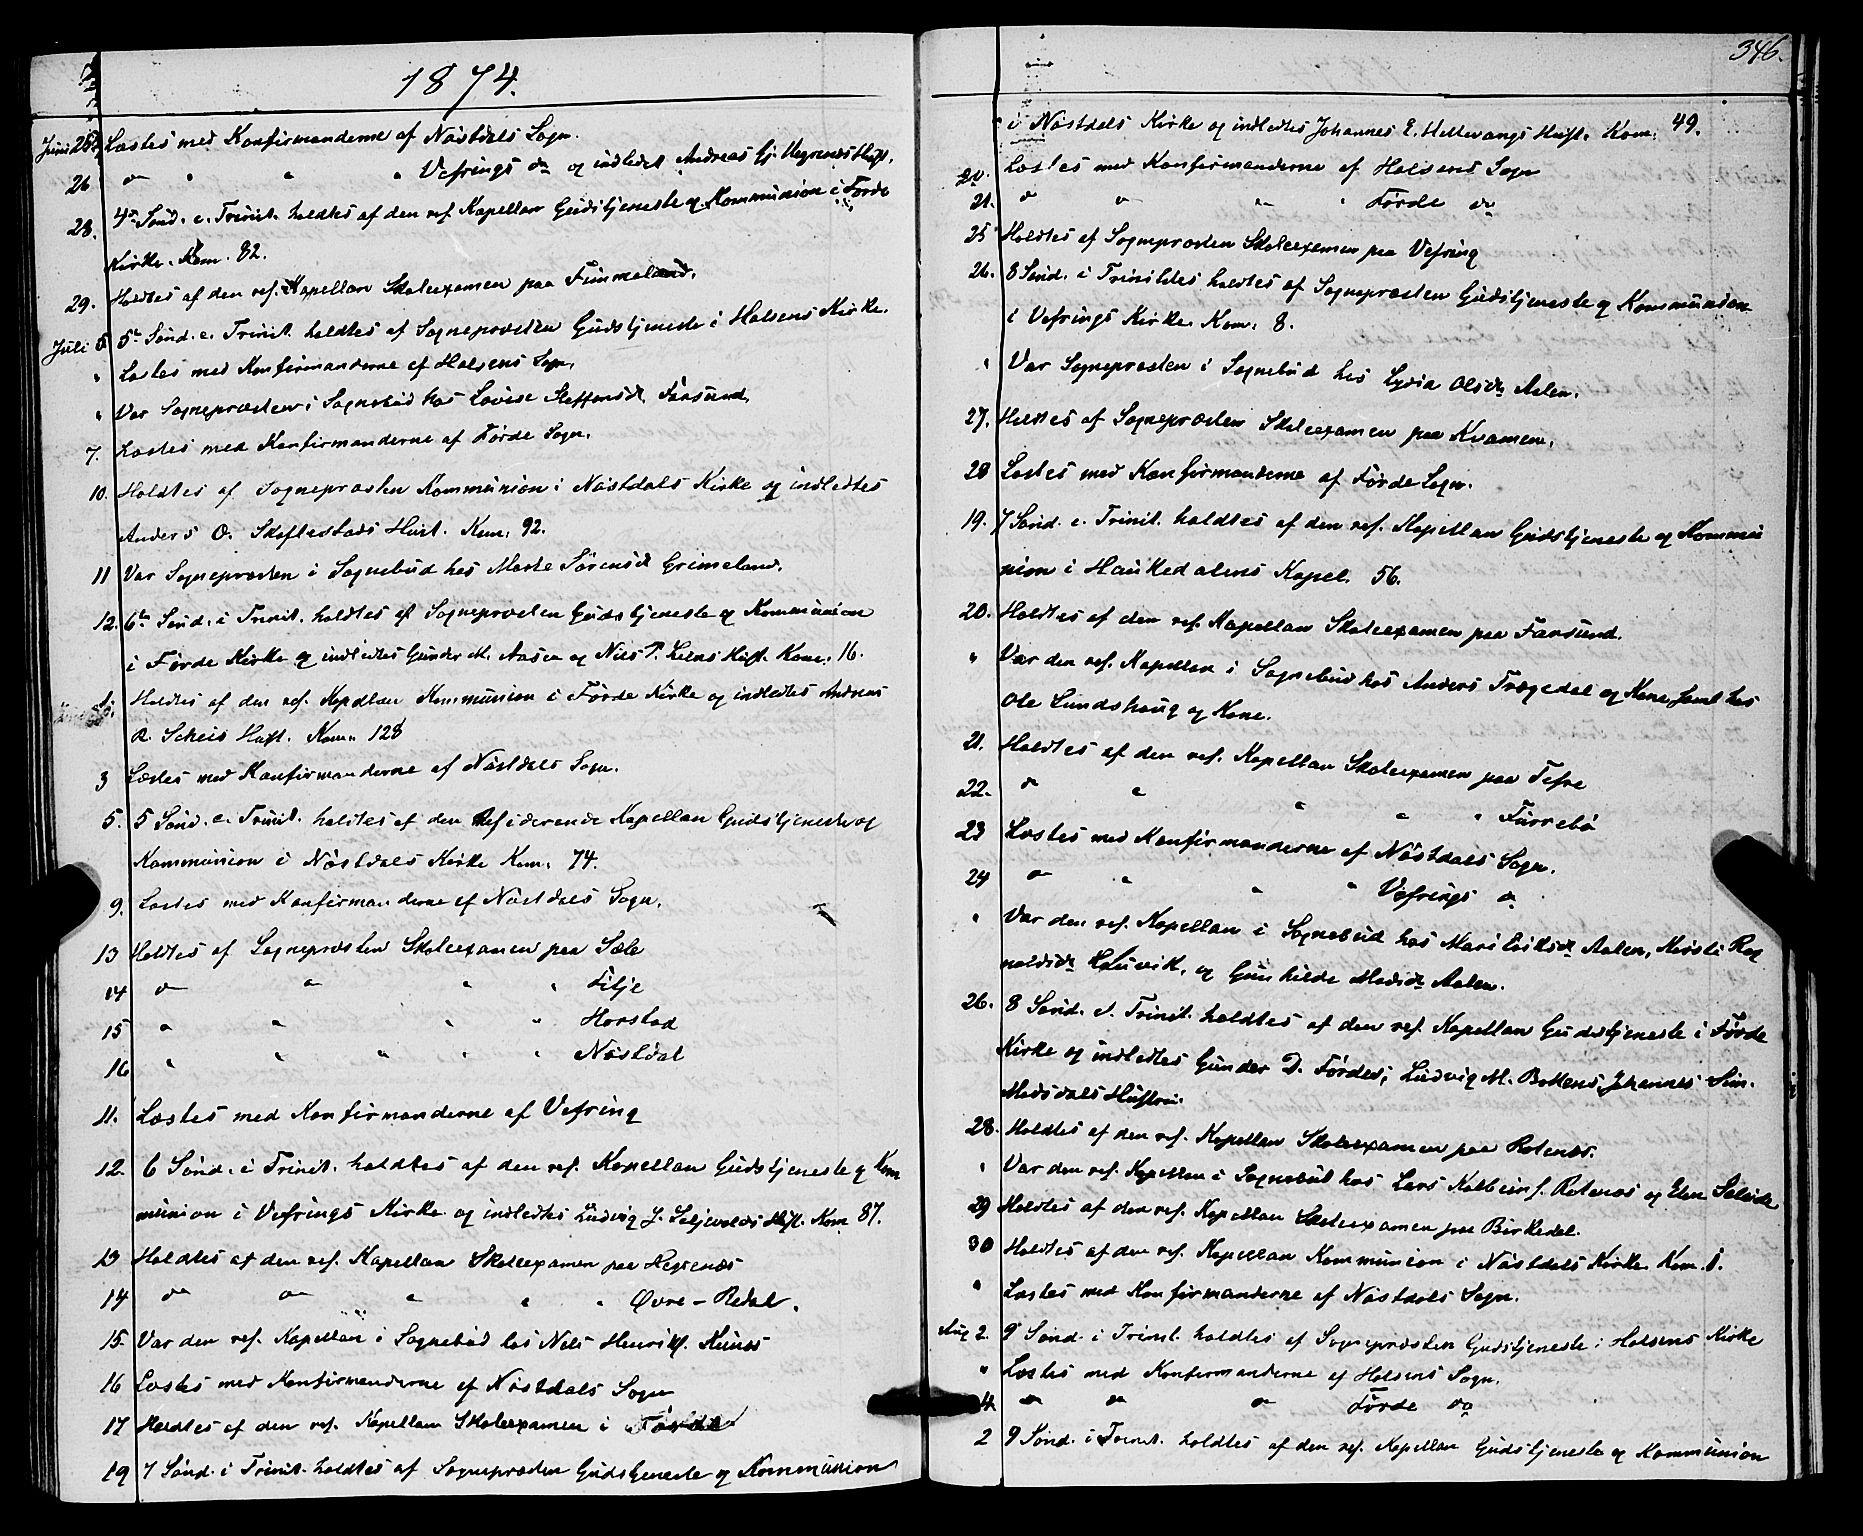 1874.
Juni 25. Læstes med Konfirmanderne af Nøstdals Sogn.
26 do " " " Vefrings do og indledet Andreas Gj. Hegrenes Hust.
28. 4de Sønd. e. Trinit. holdtes af den res. Kapellan Gudstjeneste og Kommunion i Førde
Kirke. Kom. 82.
29. Holdtes af den res. Kapellan Skoleexamen paa Fimmeland.
Juli 5 5te Sønd. e. Trinit. holdtes af Sognepræsten Gudstjeneste i Holsens Kirke.
" Læstes med Konfirmanderne af Holsens Sogn.
" Var Sognepræsten i Sognebud hos Lovise Steffensd. Farsund.
7. Læstes med Konfirmanderne af Førde Sogn.
10. Holdtes af Sognepræsten Kommunion i Nøstdals Kirke og indledtes
Anders O. Skaflestads Hust. Kom. 92.
11 Var Sognepræsten i Sognebud hos Marte Sørensd. Grimeland.
12. 6te Sønd. i Trinit. holdtes af Sognepræsten Gudstjeneste og Kommunion
i Førde Kirke og indledtes Gunder M. Aasen og Nils P. Liens Hust. Kom. 16.
Holdtes af den res. Kapellan Kommunion i Førde Kirke og indledtes Andreas
R. Scheis Hust. Kom. 128
3 Læstes med Konfirmanderne af Nøstdals Sogn.
5. 5 Sønd. e. Trinit. holdtes af den Residerende Kapellan Gudstjeneste og
Kommunion i Nøstdals Kirke Kom. 74.
9. Læstes med Konfirmanderne af Nøstdals Sogn.
13 Holdtes af Sognepræsten Skoleexamen paa Sæle
14 do " " " Filje
15 " " " " Horstad
16 " " " " " Nøstdal
11. Læstes med Konfirmanderne af Vefring
12. 6 Sønd. i Trinit. holdtes af den res. Kapellan Gudstjeneste og Kom
munion i Vefrings Kirke og indledtes Ludvig J. Seljevolds Hust. Kom 87.
13 Holdtes af den res. Kapellan Skoleexamen paa Hegrenæs
14 do do " " " Øvre-Redal.
15. Var den res. Kapellan i Sognebud hos Nils Henriks.
16 Læstes med Konfirmanderne af Nøstdals Sogn
17 Holdtes af den res. Kapellan Skoleexamen i Førde
19 7 Sønd. i Trinit. holdtes af Sognepræsten Gudstjeneste og Kommunion
346.
i Nøstdals Kirke og indledtes Johannes E. Hellevangs Hust. Kom. 49.
20. Læstes med Konfirmanderne af Holsens Sogn
21. do do " " Førde do
25 Holdtes af Sognepræsten Skoleexamen paa Vefring
26. 8 Sønd. i Trinitatis holdtes af Sognepræsten Gudstjeneste og Kommunion
i Vefrings Kirke. Kom. 8.
" Var Sognepræsten i Sognebud hos Lydia Olsdr. Aalen.
27. Holdtes af Sognepræsten Skoleexamen paa Kvamen.
28 Læstes med Konfirmanderne af Førde Sogn.
19. 7 Sønd. e. Trinit. holdtes af den res. Kapellan Gudstjeneste og Kommu
nion i Haukedalens Kapel. 56.
20. Holdtes af den res. Kapellan Skoleexamen paa Farsund.
" Var den res. Kapellan i Sognebud hos Anders Trægedal og Kone samt hos
Ole Lundshaug og Kone.
21. Holdtes af den res. Kapellan Skoleexamen paa Tefre
22. do " " " " Farrebø
23 Læstes med Konfirmanderne af Nøstdals Sogn.
24 do " " " Vefrings do
" Var den res. Kapellan i Sognebud hos Mari Eriksdr. Aalen, Kirsti Rog
naldsdr. og Gunhilde Madsdr. Aalen.
26. 8 Sønd. e. Trinit. holdtes af den res. Kapellan Gudstjeneste i Førde
Kirke og indledtes Gunder D. Førdes, Ludvig M. Bottens, Johannes
Hustru.
28. Holdtes af den res. Kapellan Skoleexamen paa Rotenæs.
" Var den res. Kapellan i Sognebud hos Lars Kolbeins. Rotenæs og
29 Holdtes af den res. Kapellan Skoleexamen paa Birkedal.
30 Holdtes af den res. Kapellan Kommunion i Nøstdals Kirke. Kom. 1.
" Læstes med Konfirmanderne af Nøstdals Sogn.
Aug 2. 9 Sønd. i Trinit. holdtes af Sognepræsten Gudstjeneste i Holsens Kirke
" Læstes med Konfirmanderne af Holsens Sogn.
4. do do do Førde do
2 9 Sønd. i Trinit. holdtes af den res. Kapellan Gudstjeneste og Kommunion